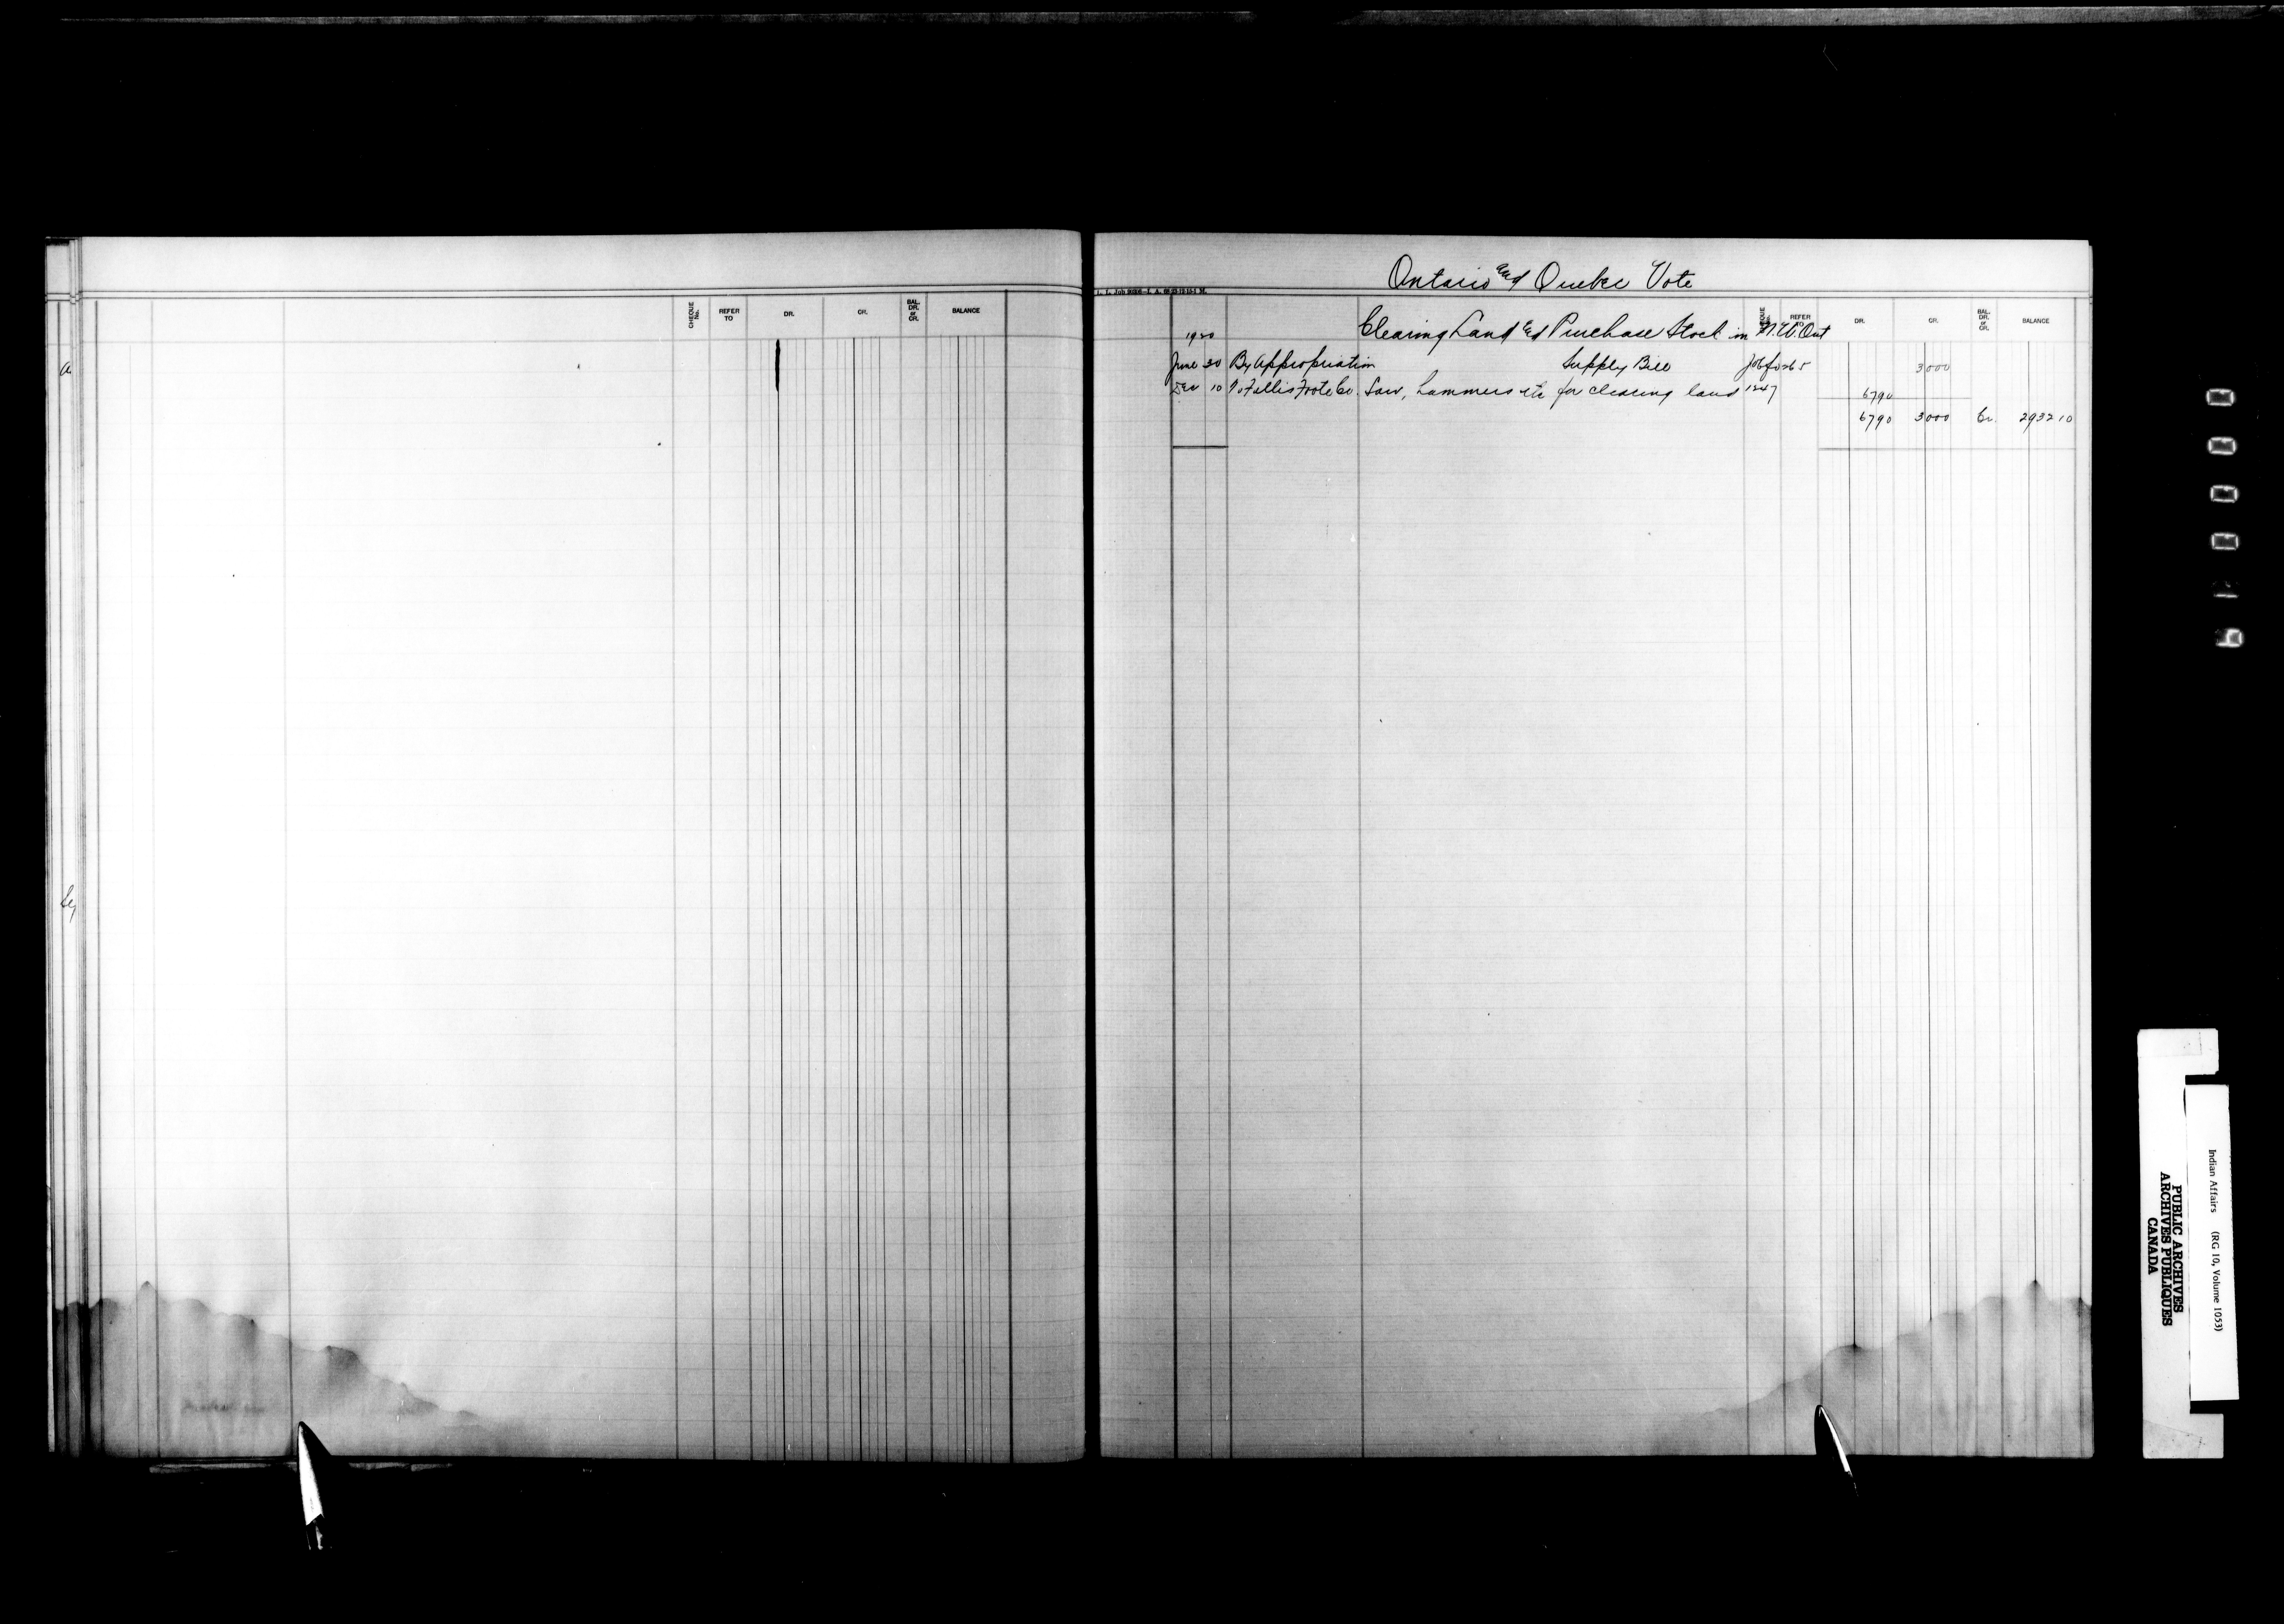 CHEQUE No. REFER TO DR. CR. BAL. DR. or CR. BALANCE
Ontario and Quebec Vote
REFER TO DR. CR. BAL. DR. or CR. BALANCE
1920 Clearing Land & Purchase Stock in N.W. Ont
June 30 By Appropriation Supply Bill 3000
Dec 10 To Foote Co. Saw, hammers etc for clearing land 1247 6790
6790 3000 Cr. 2932 10
000019
Indian Affairs (RG 10, Volume 1053)
PUBLIC ARCHIVES
ARCHIVES PUBLIQUES
CANADA